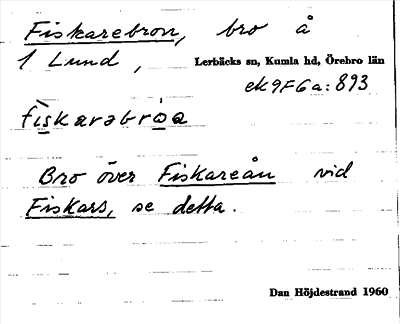 Fiskarebron, bro å
1 Lund, Lerbäcks sn, Kumla hd, Örebro län
ek 9F6a:893
fìskarəbròa
Bro över Fiskareån vid
Fiskars, se detta.
Dan Höjdestrand 1960